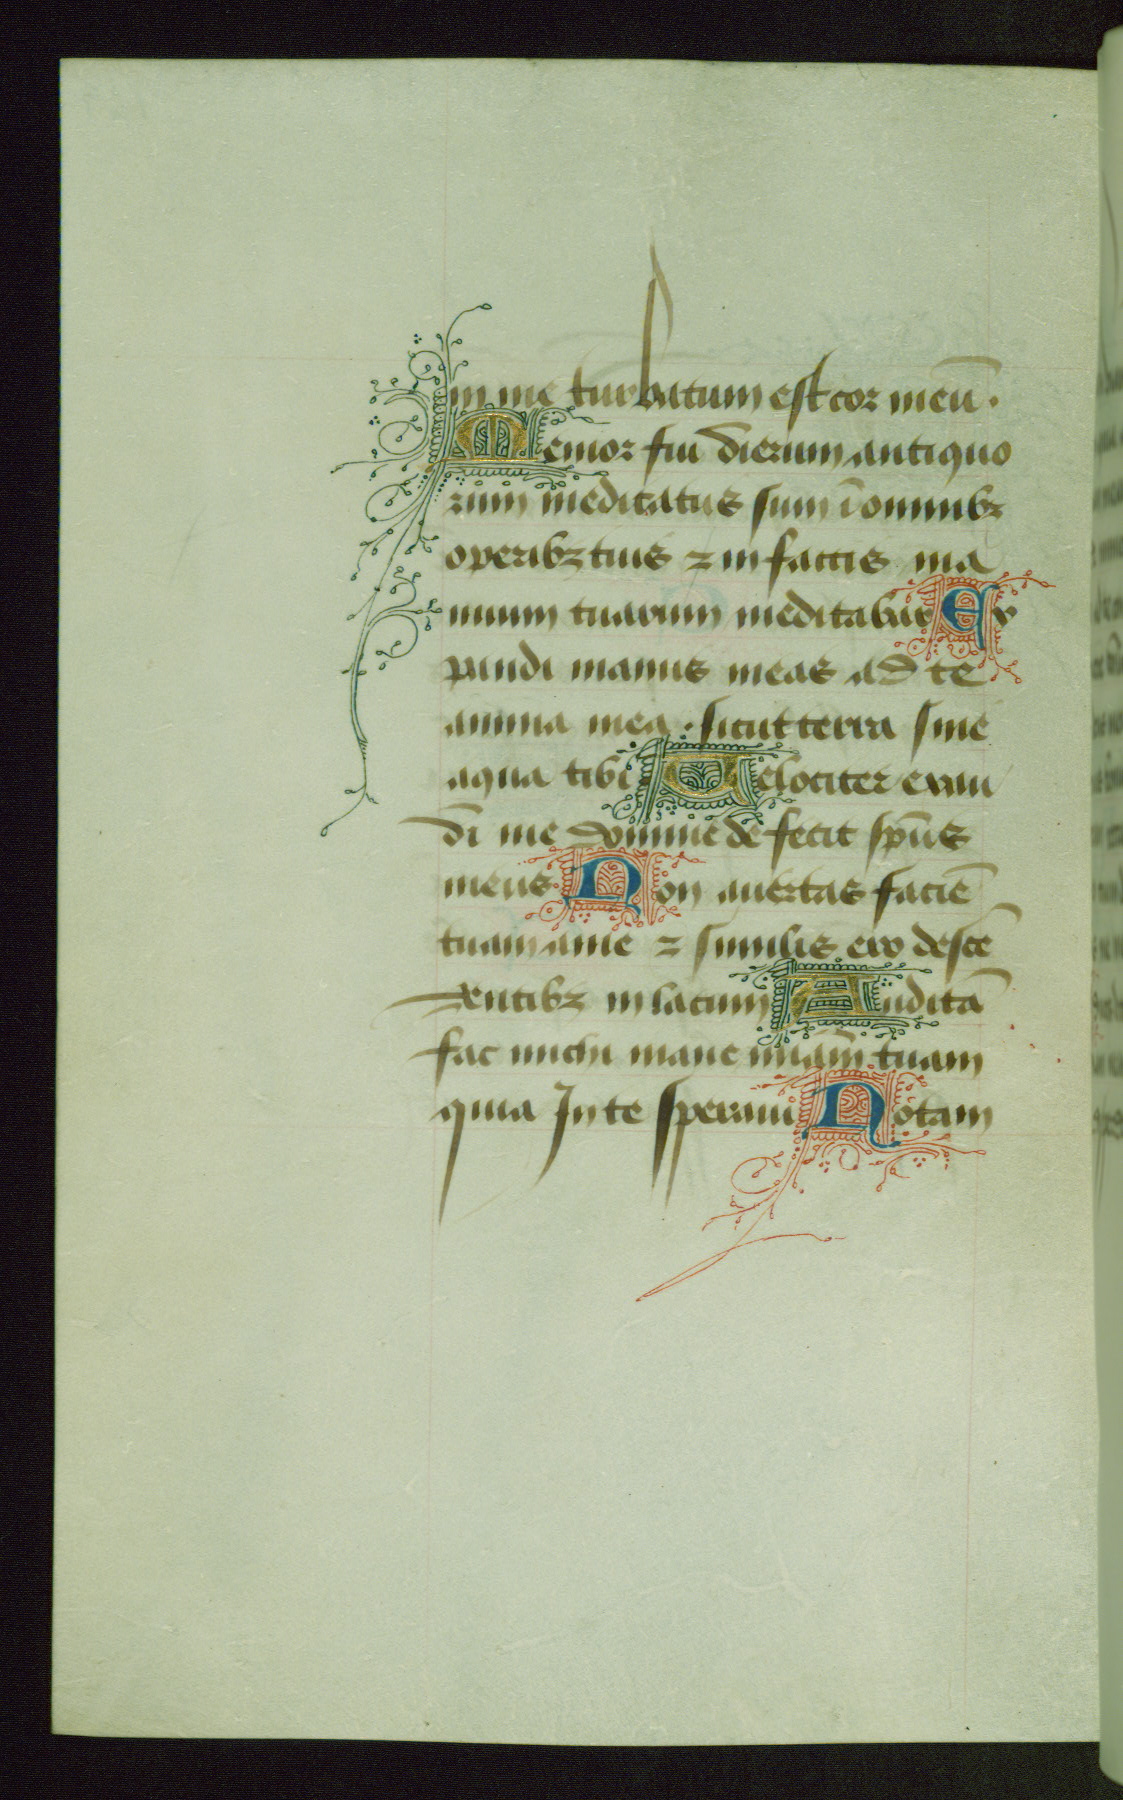 in me turbatum est cor meū .
Memor fui dierum antiquo
rum meditatus sum ī omnibꝫ
operibꝫ tuis ⁊ in factis ma
nuum tuarum meditabar Ex
pandi manus meas ad te
anima mea . sicut terra sine
aqua tibi Velociter exau
di me domine defecit sp̄us
meus Non auertas faciē
tuam a me ⁊ similis ero descē
dentibꝫ in lacum Auditā
fac michi mane mīam tuam
quia In te speraui Notam